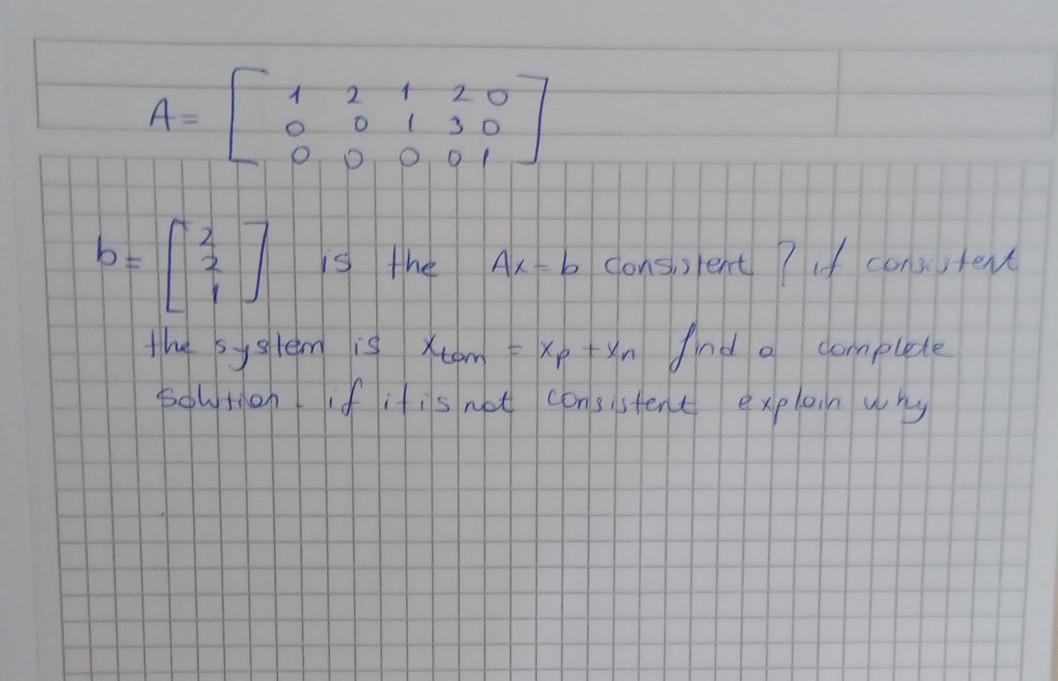 A = [ 1 2 1 2 0
0 0 1 3 0
0 0 0 0 1 ]
b = [ 2
2 is the Ax = b consistent ? if consistent
1 ]
the system is xtam = xp + xn find a complete
solution. if it is not consistent explain why